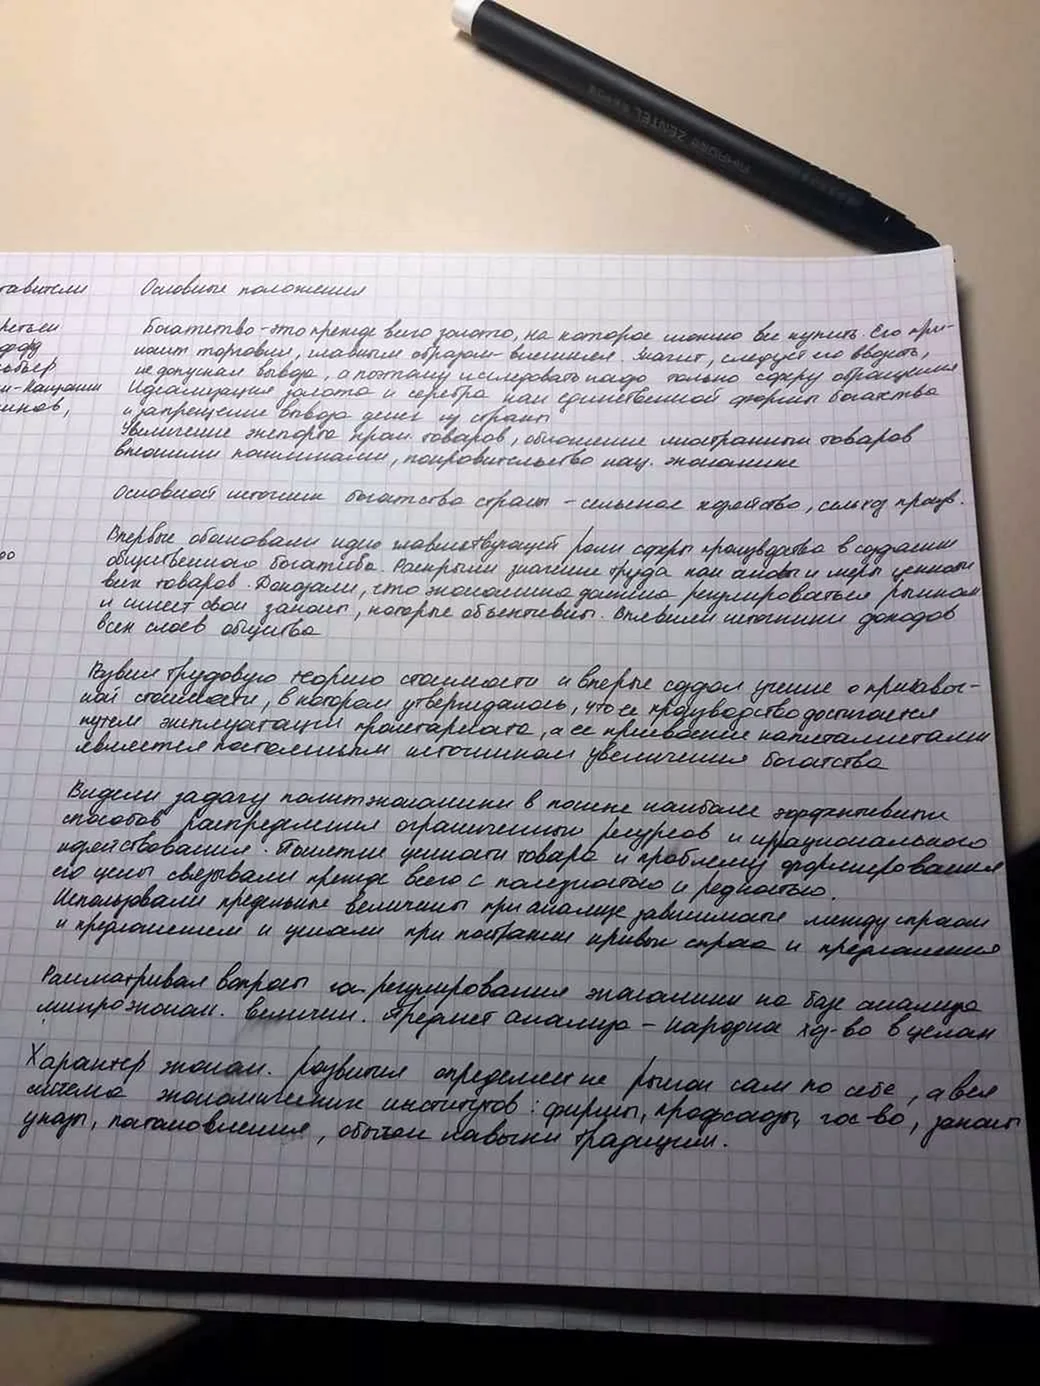 ZENTEL
тавители Основные положения
Богатство - это прежде всего золото, на которое можно все купить. Его при-
носит торговля, главным образом - внешняя. Значит, следует его ввозить,
не допуская вывода, а поэтому исследовать надо только сферу обращения
Идеализация золота и серебра как единственной формы богатства
и запрещение вывода денег из страны
Увеличение экспорта пром товаров, обложение иностранных товаров
высокими пошлинами, покровительство нац. экономике
Основной источник богатства страны - сельское хозяйство, сельхоз произв.
Впервые обосновали идею главенствующей роли сферы производства в создании
общественного богатства. Раскрыли значение труда как основы и меры ценности
всех товаров. Доказали, что экономика должна регулироваться рынком
и имеет свои законы, которые объективны. Выявили источники доходов
всех слоев общества
Развил трудовую теорию стоимости и впервые создал учение о прибавоч-
ной стоимости, в котором утверждалось, что ее производство достигается
путем эксплуатации пролетариата, а ее присвоение капиталистами
является постоянным источником увеличения богатства
Видели задачу политэкономики в поиске наиболее эффективных
способов распределения ограниченных ресурсов и иррационального
хозяйствования. Понятие ценности товара и проблему формирования
его цены связывали прежде всего с полезностью и редкостью.
Использовали предельные величины при анализе зависимости между спросом
и предложением и ценами при построении кривых спроса и предложения
Рассматривал вопросы гос. регулирования экономики на базе анализа
микроэконом. величин. Предмет анализа - народное хоз-во в целом
Характер эконом. развития определяет не рынок сам по себе, а вся
система экономических институтов: фирмы, профсоюзы, гос-во, законы
указы, постановления, обычаи навыки традиции.